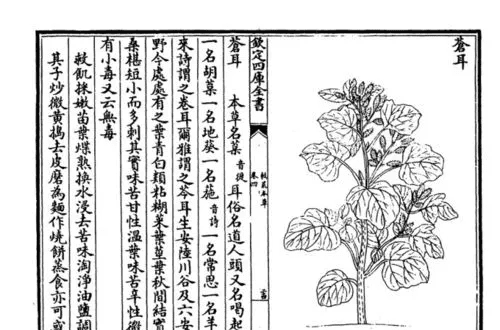 蒼耳
欽定四庫全書
救荒本草
卷四
蒼耳　本草名葈音徙耳俗名道人頭又名喝起
一名胡葈一名地葵一名葹音詩一名常思一名羊
來詩謂之卷耳爾雅謂之苓耳生安陸川谷及六安
野今處處有之葉青白類粘糊菜葉莖葉秋間結實
桑椹短小而多刺其實味苦甘性溫葉味苦辛性微
有小毒又云無毒
救飢採嫩苗葉煠熟換水浸去苦味淘淨油鹽調
其子炒微黃搗去皮磨為麵作燒餅蒸食亦可或